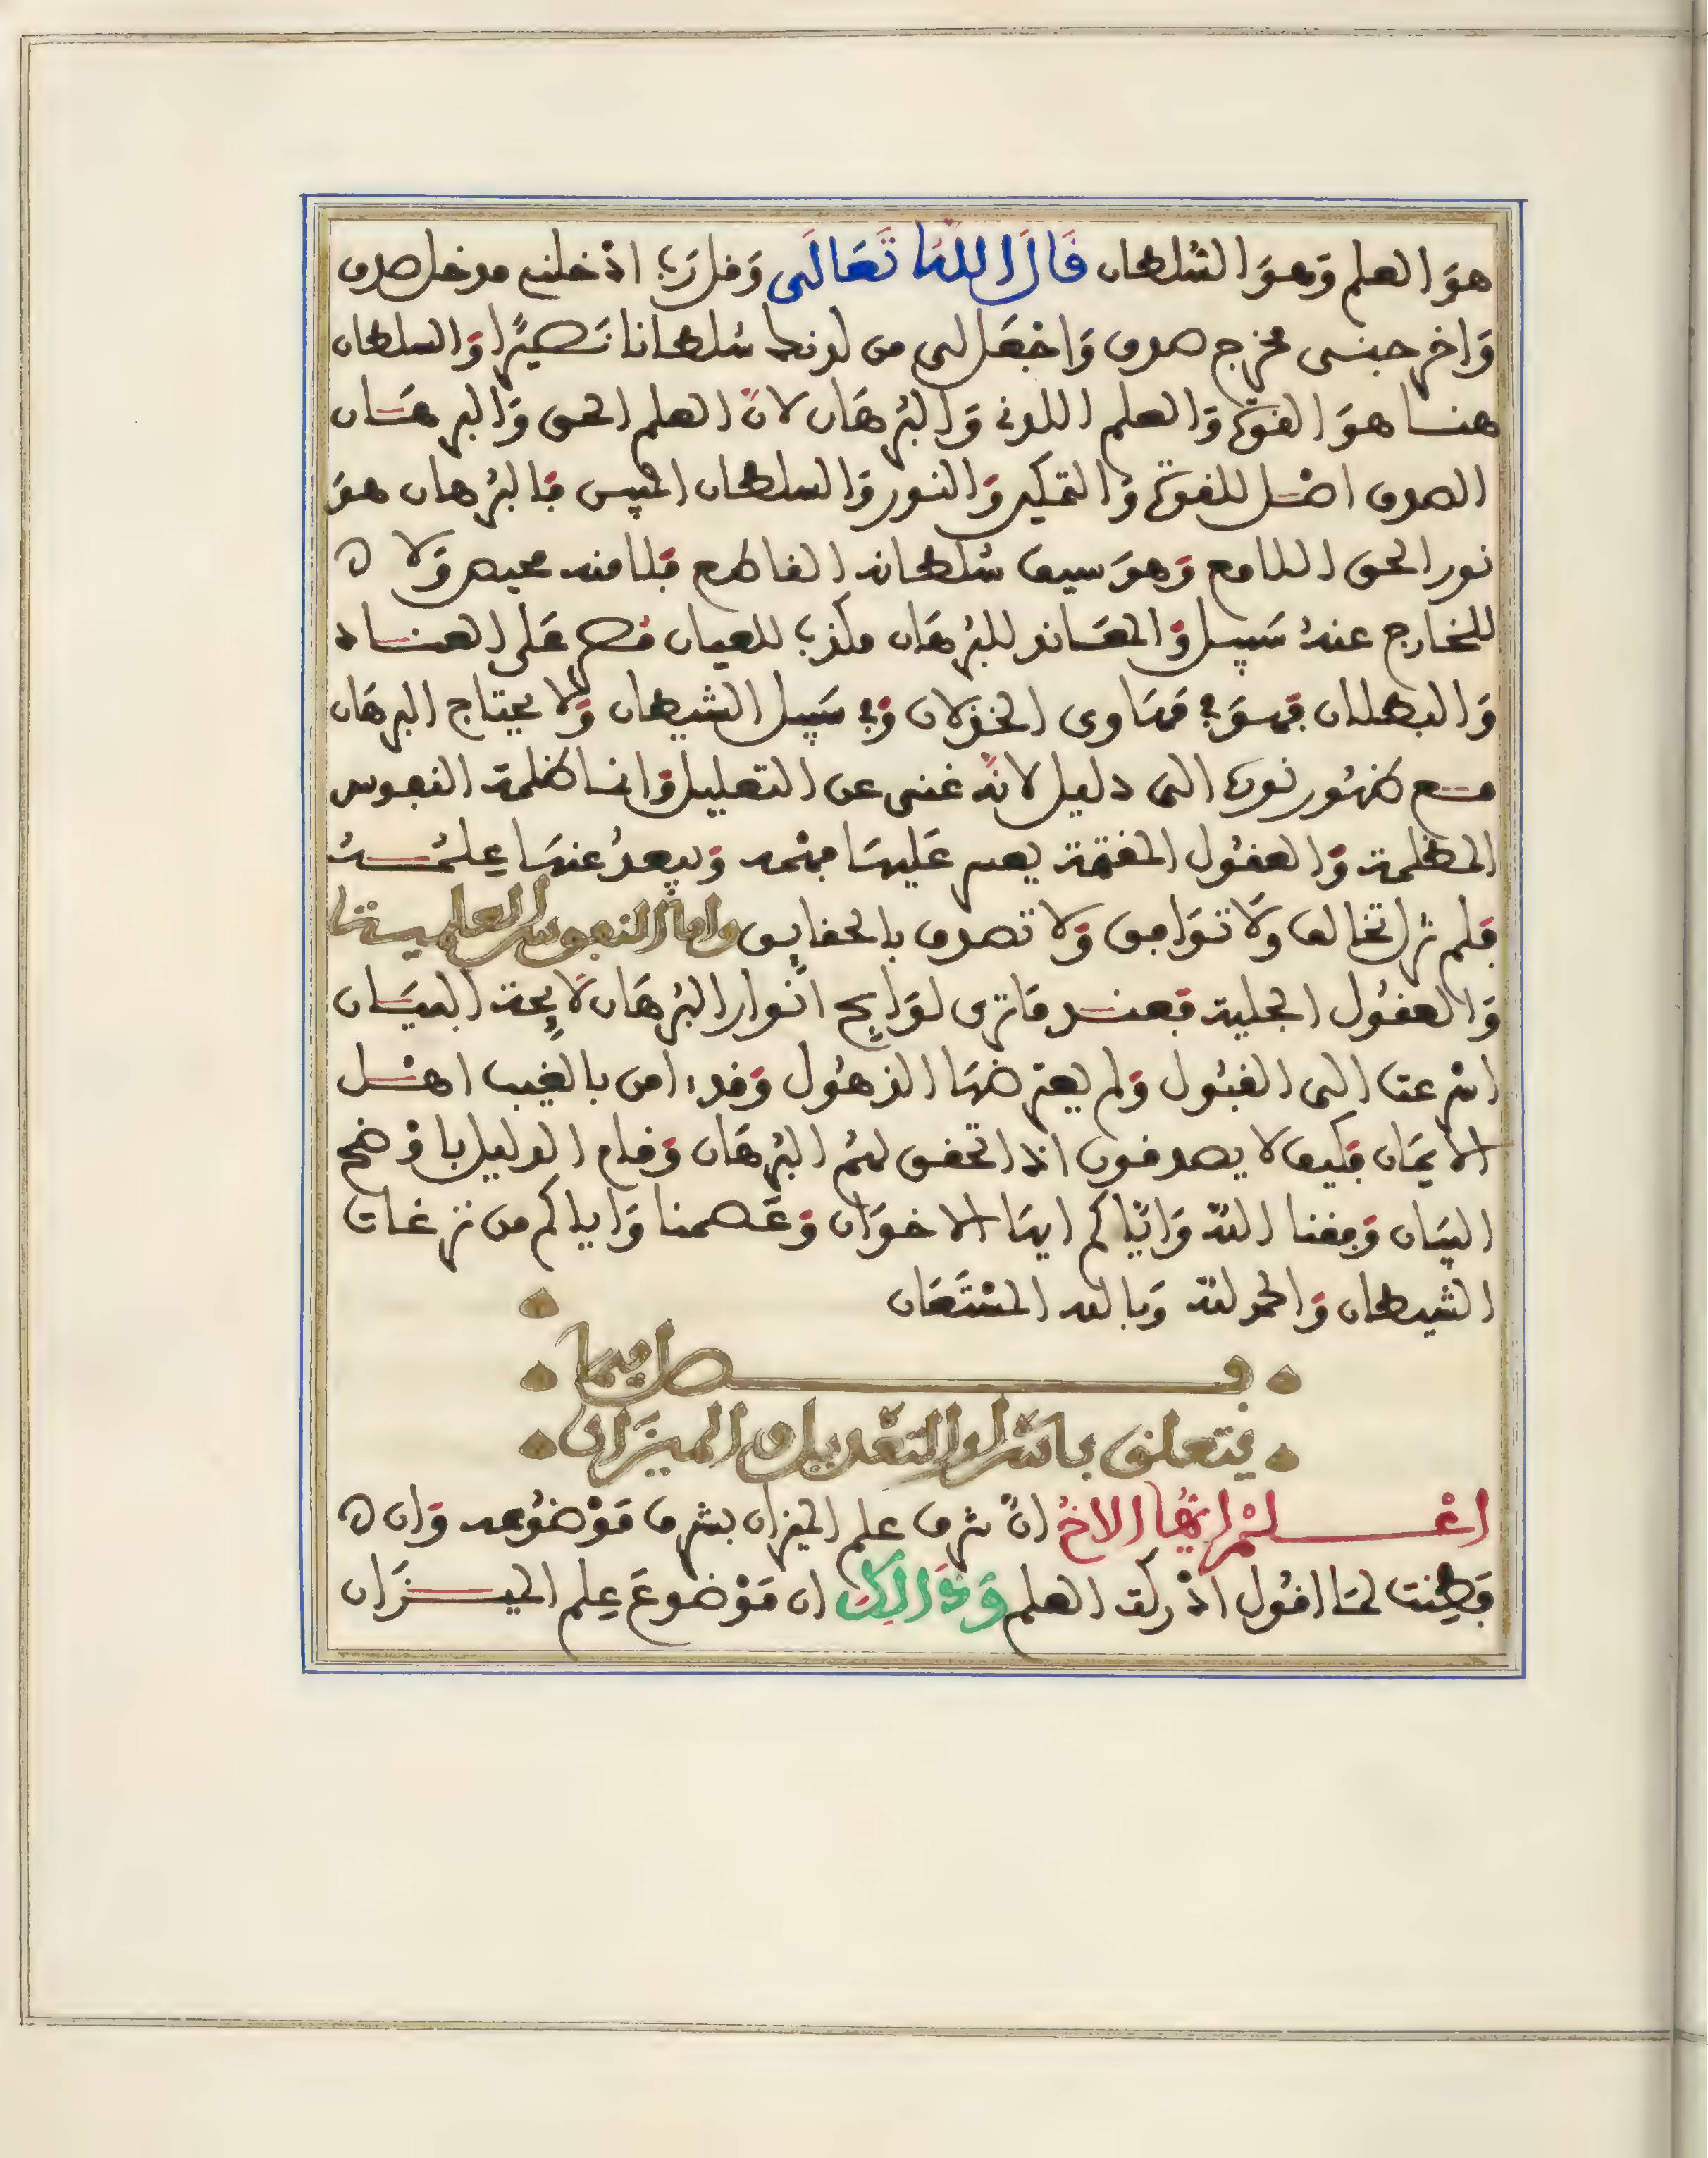 هوَ العلم وَهوَ السُّلطان قَالَ اللهُ تَعَالَى وَقل رَب اَدْخلني مدخل صدق
وَاخرجنى مخرج صدق وَاجْعَل لى من لدنك سُلطانا نَصيرًا وَالسلطان
هنا هوَ القوّة وَالعلم اللدني وَالبُرهَان لانّ العلم الحق وَالبرهَان
الصدق اصْل للقوّة وَالتمكين وَالنور وَالسلطان المبين فالبُرهان هوَ
نور الحق اللامع وَهوَ سيف سُلطانه القاطع فلا منه محيص وَلا
للخارج عنهُ سَبيل وَالمعَاند للبُرهَان مكذب للعيان مُصر عَلى العناد
وَالبطلان فهوَ في مهَاوى الخذلان وَفي سَبيل الشيطان وَلا يحتاج البرهَان
مع ظهُور نوره الى دليل لانّه غنى عن التعليل وَانما ظلمة النفوس
المظلمة وَالعقُول المقتمة يعسر عَليهَا فهْمه وَيبعدُ عنهَا عِلمُهُ
فلم تزل تخالف وَلَا توَافق وَلا تصدق بالحقايق واما النفوس العلمية
وَالعقُول الجلية فعند مَا ترى لوَايح انوار البُرهَان لَايِحة البيَان
اسْرعت الى القبُول وَلم يعترضهَا الذهُول وَقد ءامن بالغيب اهْل
الايمَان فكيف لا يصدقون اذا تحقق لهُم البُرهَان وَقام الدليل باوْضح
البيَان وَفقنا اللّه وَايّاكم ايهَا الاخوَان وَعَصمنا وَاياكم من نزغات
الشيطان وَالحمد للّه وَبالله المسْتَعَان
فصل فيما
يتعلق باسْرار التعْديل والميزَان
اعْلمْ ايّهَا الاخُ انّ شرف علم الميزان بشرف مَوْضوُعه وَان
فَطِنت لمَا اقُول ادْركت العلم وَذَالِكَ ان مَوْضوعَ عِلم الميزَان